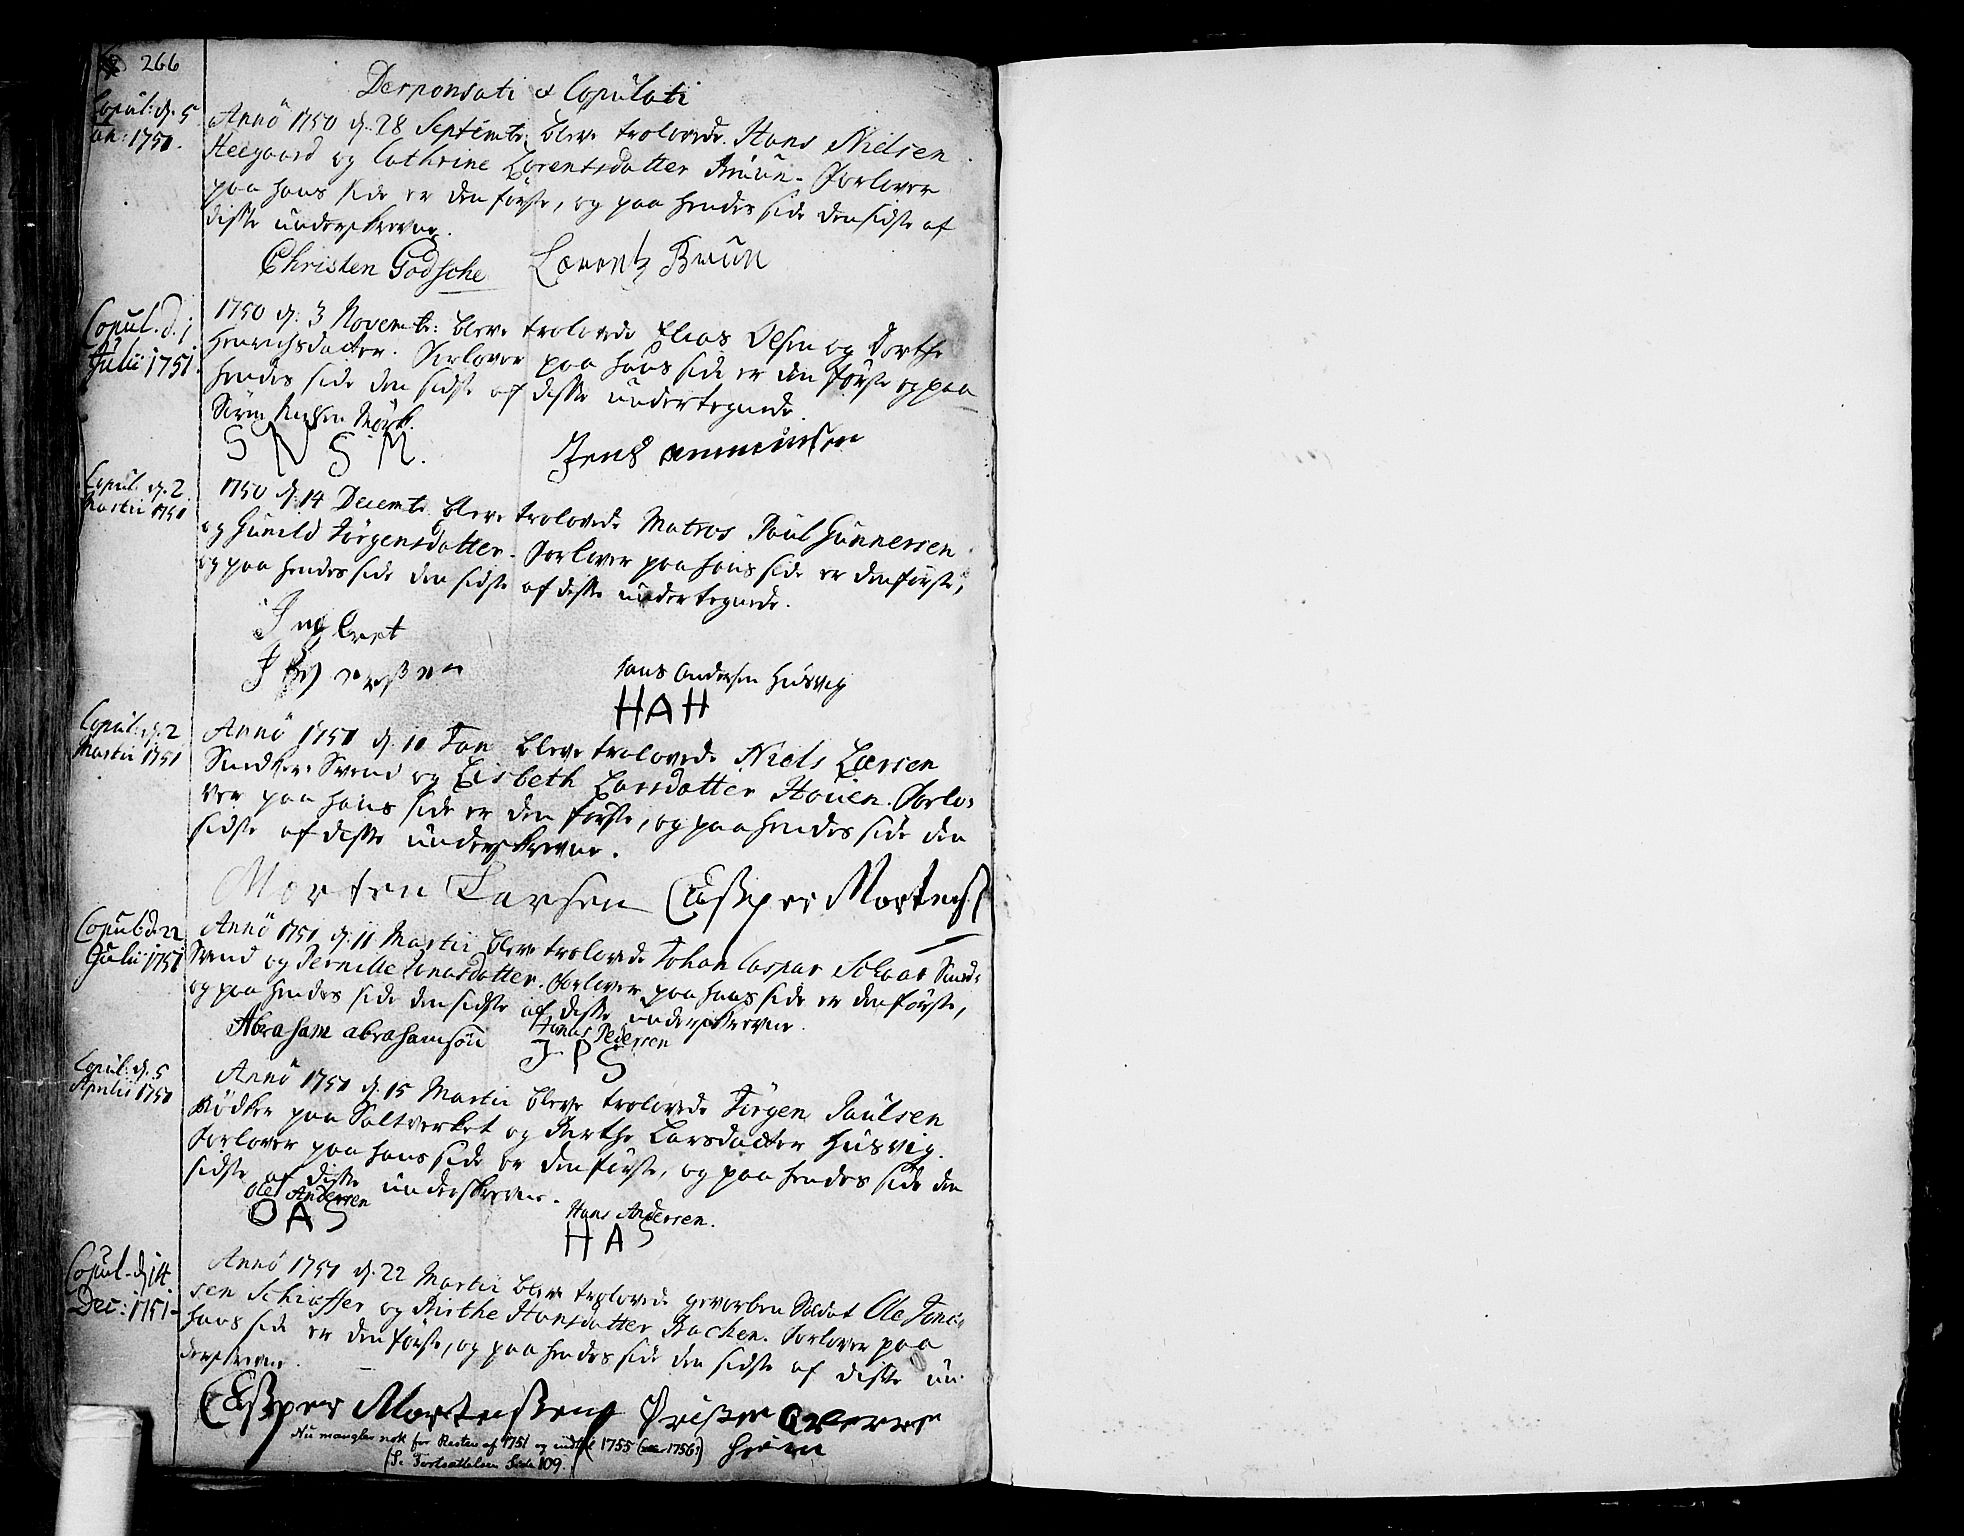 266
Desponsati et Copulati
Copul: d. 5
Jan: 1751.
Anno 1750 d. 28 Septembr: blev trolovede Hans Nielsen
Heegaard og Cathrine Lorentsdatter Bruun. Forlover
paa hans side er den første, og paa hendes side den sidste af
disse underskrevne.
Christen Godsche Lorentz Bruun
Copul. d. 1
Julii 1751.
1750 d. 3 Novembr: bleve trolovede Elias Olsen og Dorthe
Henrichsdatter. Forlover paa hans side er den første og paa
hendes side den sidste af disse undertegnede.
Sören Nielsen Mörk.
S N S M. Jens
Copul. d. 2
Martii 1751
1750 d. 14 Decembr. bleve trolovede Matros Poul Gunnersen
og Gunild Jörgensdatter. Forlover paa hans side er den første,
og paa hendes side den sidste af disse undertegnede.
Ingbret
Hans Andersen Husvig
HAH
Copul: d. 2
Martii 1751
Anno 1751 d. 11 Jan bleve trolovede Niels Larsen
Smedker Svend og Lisbeth Larsdatter Houen. Forlo-
ver paa hans side er den første, og paa hendes side den
sidste af disse underskrevne.
Morten Larsen Casper Mortens
Copul d. 22
Julii 1751
Anno 1751 d. 11 Martii bleve trolovede Johan Caspar Smed-
Svend og Pernille Jonasdatter. Forlover paa hans side er den første,
og paa hendes side den sidste af disse underskrevne.
Abraham abrahamsön Jonas Pedersen
J P S
Copul: d. 5
Aprilii 1751
Anno 1751 d. 15 Martii bleve trolovede Jörgen Poulsen
Bödker paa Saltverket og Birthe Larsdatter Husvig.
Forlover paa hans side er den første, og paa hendes side den
sidste af disse underskrevne.
Ole Andersen
O A S Hans Andersen.
H A S
Copul. d 14
Dec: 1751
Anno 1751 d. 22 Martii bleve trolovede gevorben Soldat Ole Jone-
sen Schieffer og Birthe Hansdatter Bachen. Forlover paa
hans side er den første, og paa hendes side den sidste af disse un-
derskrevne.
Casper Mortensen
Nu mangler nok for Resten af 1751 og indtil 1755 (1756?)
(Se Fortsættelsen Side 109.)